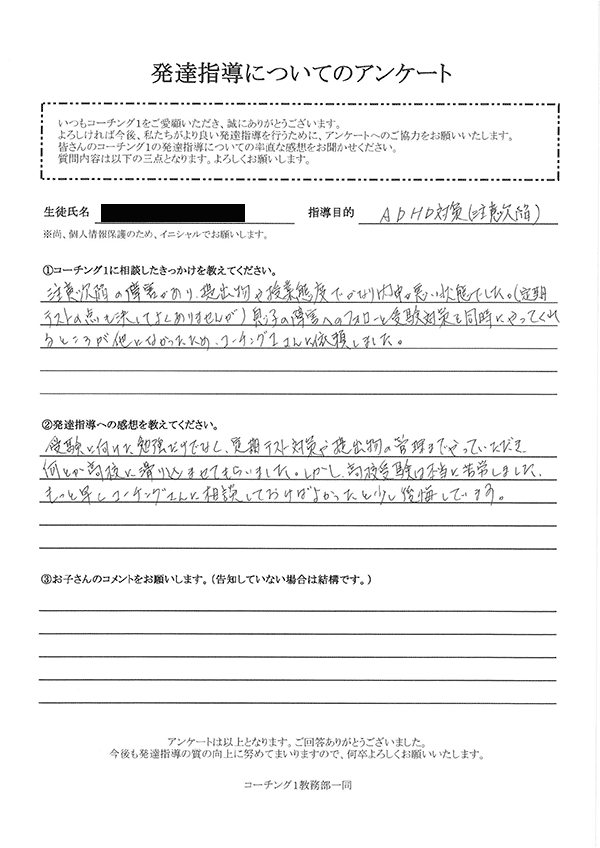 発達指導についてのアンケート
いつもコーチング1をご愛顧いただき、誠にありがとうございます。
よろしければ今後、私たちがより良い発達指導を行うために、アンケートへのご協力をお願いいたします。
皆さんのコーチング1の発達指導についての率直な感想をお聞かせください。
質問内容は以下の三点となります。よろしくお願いします。
生徒氏名 指導目的 ADHD対策(注意欠陥)
※尚、個人情報保護のため、イニシャルでお願いします。
①コーチング1に相談したきっかけを教えてください。
注意欠陥の障害があり、提出物や授業態度でかなり内申が悪い状態でした。(定期
テストの点も決してよくありませんが)息子の障害へのフォローと受験対策を同時にやってくれ
るところが他になかったため、コーチング1さんに依頼しました。
②発達指導への感想を教えてください。
受験に向けた勉強だけでなく、定期テスト対策や提出物の管理までやっていただき
何とか高校に滑り込ませてもらいました。しかし、高校受験は本当に苦労しました。
もっと早くコーチング1さんに相談しておけばよかったと少し後悔しています。
③お子さんのコメントをお願いします。(告知していない場合は結構です。)
アンケートは以上となります。ご回答ありがとうございました。
今後も発達指導の質の向上に努めてまいりますので、何卒よろしくお願いいたします。
コーチング1教務部一同